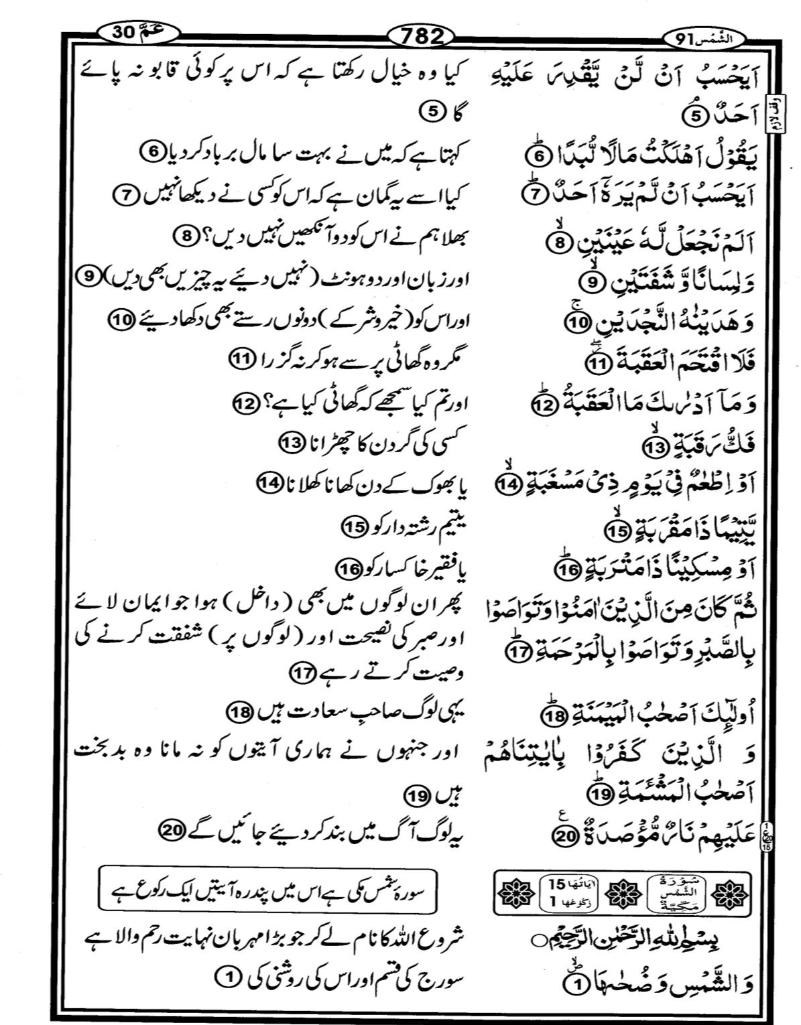 الشَّمْس 91
782
عَمَّ 30
وقف لازم
اَيَحْسَبُ اَنْ لَّنْ يَّقْدِرَ عَلَيْهِ
اَحَدٌ ۘ 5
کیا وہ خیال رکھتا ہے کہ اس پر کوئی قابو نہ پائے
گا 5
يَقُوْلُ اَهْلَكْتُ مَالًا لُّبَدًا ؕ 6
کہتا ہے کہ میں نے بہت سا مال برباد کردیا 6
اَيَحْسَبُ اَنْ لَّمْ يَرَهٗٓ اَحَدٌ ؕ 7
کیا اسے یہ گمان ہے کہ اس کو کسی نے دیکھا نہیں 7
اَلَمْ نَجْعَلْ لَّهٗ عَيْنَيْنِ ۙ 8
بھلا ہم نے اس کو دو آنکھیں نہیں دیں؟ 8
وَلِسَانًا وَّ شَفَتَيْنِ ۙ 9
اور زبان اور دو ہونٹ (نہیں دیئے یہ چیزیں بھی دیں) 9
وَ هَدَيْنٰهُ النَّجْدَيْنِ ۚ 10
اور اس کو (خیر و شر کے) دونوں رستے بھی دکھا دیئے 10
فَلَا اقْتَحَمَ الْعَقَبَةَ ۖ 11
مگر وہ گھاٹی پر سے ہو کر نہ گزرا 11
وَ مَآ اَدْرٰىكَ مَا الْعَقَبَةُ ؕ 12
اور تم کیا سمجھے کہ گھاٹی کیا ہے؟ 12
فَكُّ رَقَبَةٍ ۙ 13
کسی کی گردن کا چھڑانا 13
اَوْ اِطْعٰمٌ فِيْ يَوْمٍ ذِيْ مَسْغَبَةٍ ۙ 14
یا بھوک کے دن کھانا کھلانا 14
يَّتِيْمًا ذَا مَقْرَبَةٍ ۙ 15
یتیم رشتہ دار کو 15
اَوْ مِسْكِيْنًا ذَا مَتْرَبَةٍ ؕ 16
یا فقیر خاکسار کو 16
ثُمَّ كَانَ مِنَ الَّذِيْنَ اٰمَنُوْا وَتَوَاصَوْا
بِالصَّبْرِ وَتَوَاصَوْا بِالْمَرْحَمَةِ ؕ 17
پھر ان لوگوں میں بھی (داخل) ہوا جو ایمان لائے
اور صبر کی نصیحت اور (لوگوں پر) شفقت کرنے کی
وصیت کرتے رہے 17
اُولٰٓئِكَ اَصْحٰبُ الْمَيْمَنَةِ ؕ 18
یہی لوگ صاحب سعادت ہیں 18
وَ الَّذِيْنَ كَفَرُوْا بِاٰيٰتِنَا هُمْ
اَصْحٰبُ الْمَشْـَٔمَةِ ؕ 19
اور جنہوں نے ہماری آیتوں کو نہ مانا وہ بدبخت
ہیں 19
عَلَيْهِمْ نَارٌ مُّؤْصَدَةٌ ع 20
یہ لوگ آگ میں بند کر دیئے جائیں گے 20
سُوْرَةُ الشَّمْسِ مَكِّيَّةٌ
اٰيَاتُهَا 15
رُكُوْعُهَا 1
سورۂ شمس مکی ہے اس میں پندرہ آیتیں ایک رکوع ہے
بِسْمِ اللهِ الرَّحْمٰنِ الرَّحِيْمِ ○
شروع اللہ کا نام لے کر جو بڑا مہربان نہایت رحم والا ہے
وَ الشَّمْسِ وَ ضُحٰىهَا ۙ 1
سورج کی قسم اور اس کی روشنی کی 1